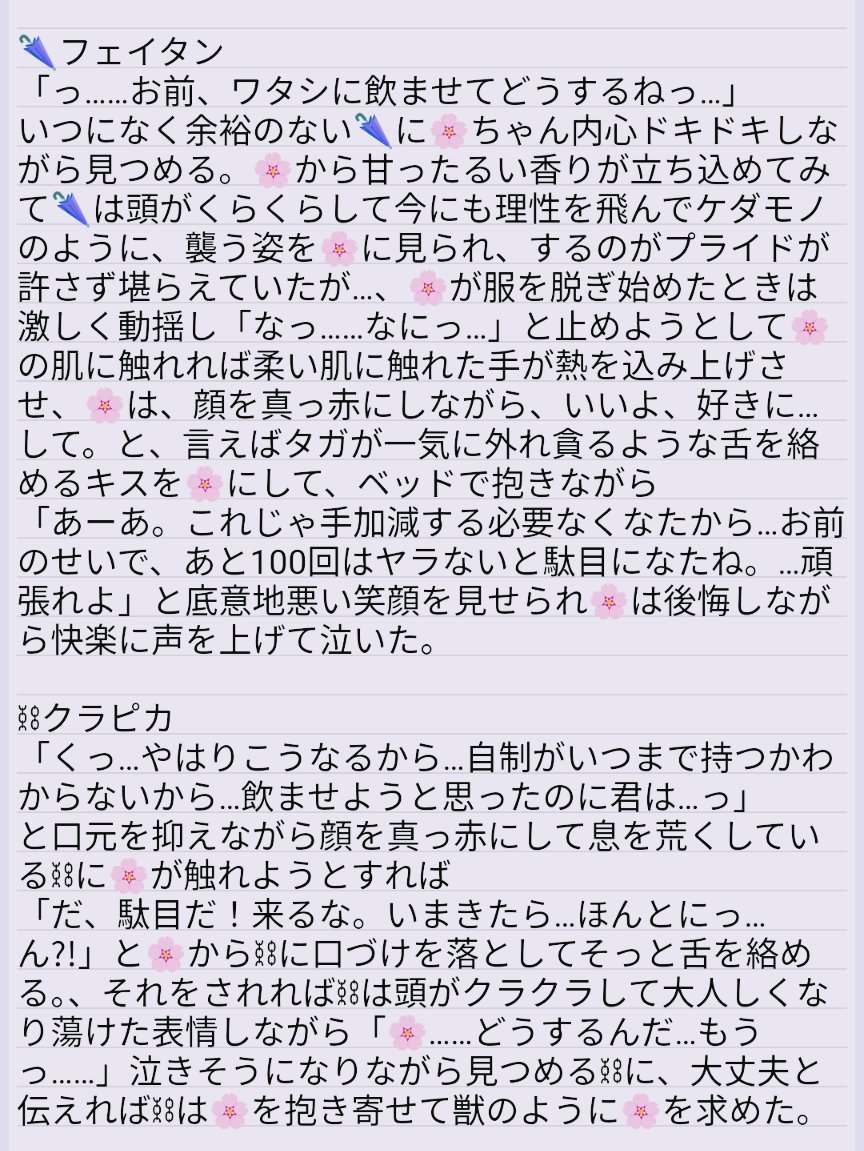 🌂フェイタン
「っ……お前、ワタシに飲ませてどうするねっ…」
いつになく余裕のない🌂に🌸ちゃん内心ドキドキしな
がら見つめる。🌸から甘ったるい香りが立ち込めてみ
て🌂は頭がくらくらして今にも理性を飛んでケダモノ
のように、襲う姿を🌸に見られ、するのがプライドが
許さず堪らえていたが…、🌸が服を脱ぎ始めたときは
激しく動揺し「なっ……なにっ…」と止めようとして🌸
の肌に触れれば柔い肌に触れた手が熱を込み上げさ
せ、🌸は、顔を真っ赤にしながら、いいよ、好きに…
して。と、言えばタガが一気に外れ貪るような舌を絡
めるキスを🌸にして、ベッドで抱きながら
「あーあ。これじゃ手加減する必要なくなたから…お前
のせいで、あと100回はヤラないと駄目になたね。…頑
張れよ」と底意地悪い笑顔を見せられ🌸は後悔しなが
ら快楽に声を上げて泣いた。

⛓クラピカ
「くっ…やはりこうなるから…自制がいつまで持つかわ
からないから…飲ませようと思ったのに君は…っ」
と口元を抑えながら顔を真っ赤にして息を荒くしてい
る⛓に🌸が触れようとすれば
「だ、駄目だ！来るな。いまきたら…ほんとにっ…
ん?!」と🌸から⛓に口づけを落としてそっと舌を絡め
る。、それをされれば⛓は頭がクラクラして大人しくな
り蕩けた表情しながら「🌸……どうするんだ…もう
っ……」泣きそうになりながら見つめる⛓に、大丈夫と
伝えれば⛓は🌸を抱き寄せて獣のように🌸を求めた。